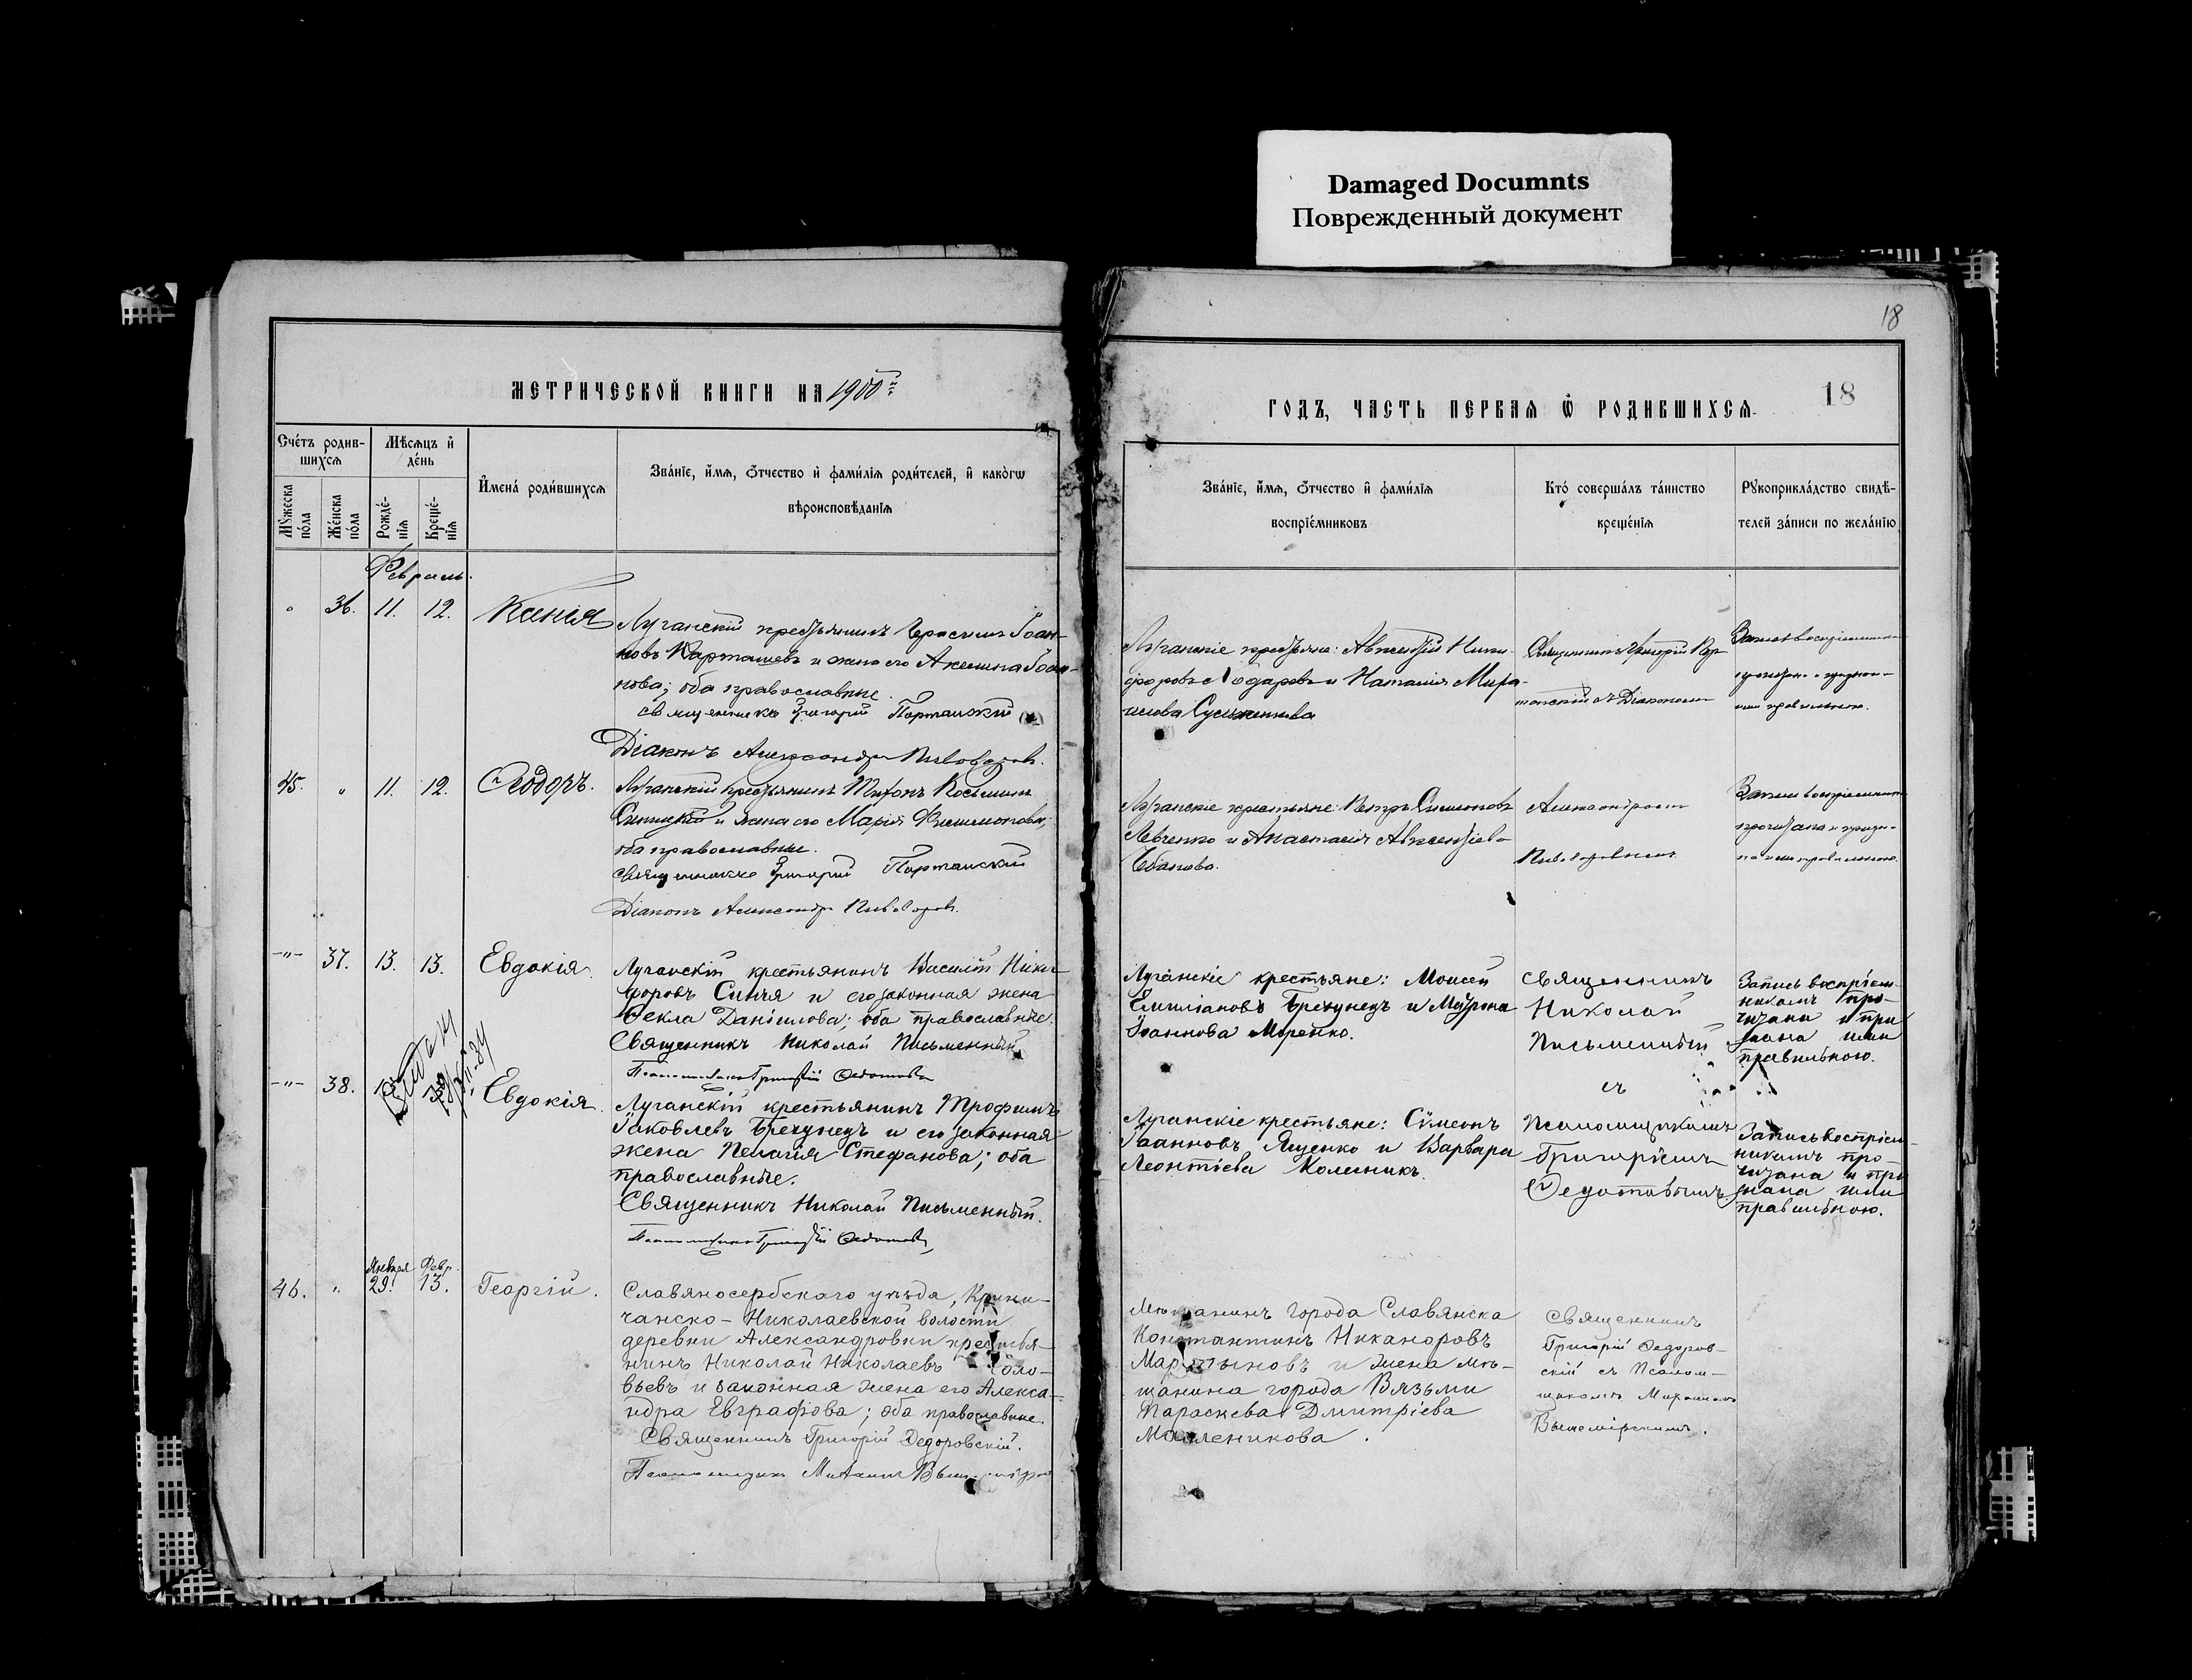 Damaged Documnts
Поврежденный документ
18
МЕТРИЧЕСКОЙ КНИГИ НА 1900й
ГОДЪ, ЧАСТЬ ПЕРВАЯ Ѿ РОДИВШИХСЯ.
18
Счетъ родив-
шихся
Мѣсяцъ и
день
Мужеска
пола
Женска
пола
Рожде-
нія
Креще-
нія
Имена родившихся
Званіе, имя, отчество и фамилія родителей, и какогѡ
вѣроисповѣданія
Званіе, имя, отчество и фамилія
воспріемниковъ
Кто совершалъ таинство
крещенія
Рукоприкладство свидѣ-
телей записи по желанію
Февраль.
36. 11. 12. Ксенія
Луганскій крестьянинъ Герасимъ Іоан-
новъ Карташевъ и жена его Акелина Іоан-
нова; оба православные.
священникъ Григорій Портанскій
Діаконъ Александръ Пивоваровъ.
Луганскіе крестьяне: Авксентій Ники-
форовъ и Наталія
Священникъ Григорій Пор-
танскій съ Діакономъ
45. " 11. 12. Ѳеодоръ.
Луганскій крестьянинъ Тихонъ Косьминъ
и жена его Марія Филимонова;
оба православные.
священникъ Григорій Портанскій
Діаконъ Александръ Пивоваровъ.
Луганскіе крестьяне: Петръ Симеоновъ
Левченко и Анастасія Авксентіева
Чебанова.
Александромъ
Пивоваровымъ
-"- 37. 13. 13. Евдокія.
Луганскій крестьянинъ Василій Ники-
форовъ Синчя и его законная жена
Ѳекла Даніилова; оба православные.
Священникъ Николай Письменный
Псаломщикъ Григорій Ѳедотовъ
Луганскіе крестьяне: Моисей
Емиліановъ Брехунецъ и Матрона
Іоаннова Моренко.
Священникъ
Николай
Письменный
съ
Псаломщикомъ
Григоріемъ
Ѳедотовымъ
Запись воспріем-
никамъ про-
читана и при
знана ими
правильною.
-"- 38. 13. 13. Евдокія.
Луганскій крестьянинъ Трофимъ
Іаковлевъ Брехунецъ и его законная
жена Пелагія Стефанова; оба
православные.
Священникъ Николай Письменный.
Псаломщикъ Григорій Ѳедотовъ
Луганскіе крестьяне: Сѵмеонъ
Іоанновъ Яценко и Варвара
Леонтіева Колесникъ.
Запись воспріем-
никамъ про-
читана и при
знана ими
правильною.
Января Февр.
46. " 29. 13. Георгій.
Славяносербскаго уѣзда, Крини-
чанско-Николаевской волости
деревни Александровки крестья-
нинъ Николай Николаевъ
вьевъ и законная жена его Алекса-
ндра Евграфова; оба православные.
Священникъ Григорій Ѳедоровскій.
Псаломщикъ Михаилъ
Мѣщанинъ города Славянска
Константинъ Никаноровъ
Мартыновъ и жена мѣ-
щанина города Вязьми
Параскева Дмитріева
Масленикова.
Священникъ
Григорій Ѳедоров-
скій съ Псалом-
щикомъ Михаиломъ
Вышемірскимъ.